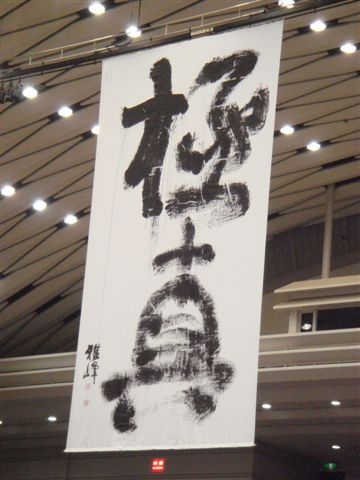 極真
雅峰